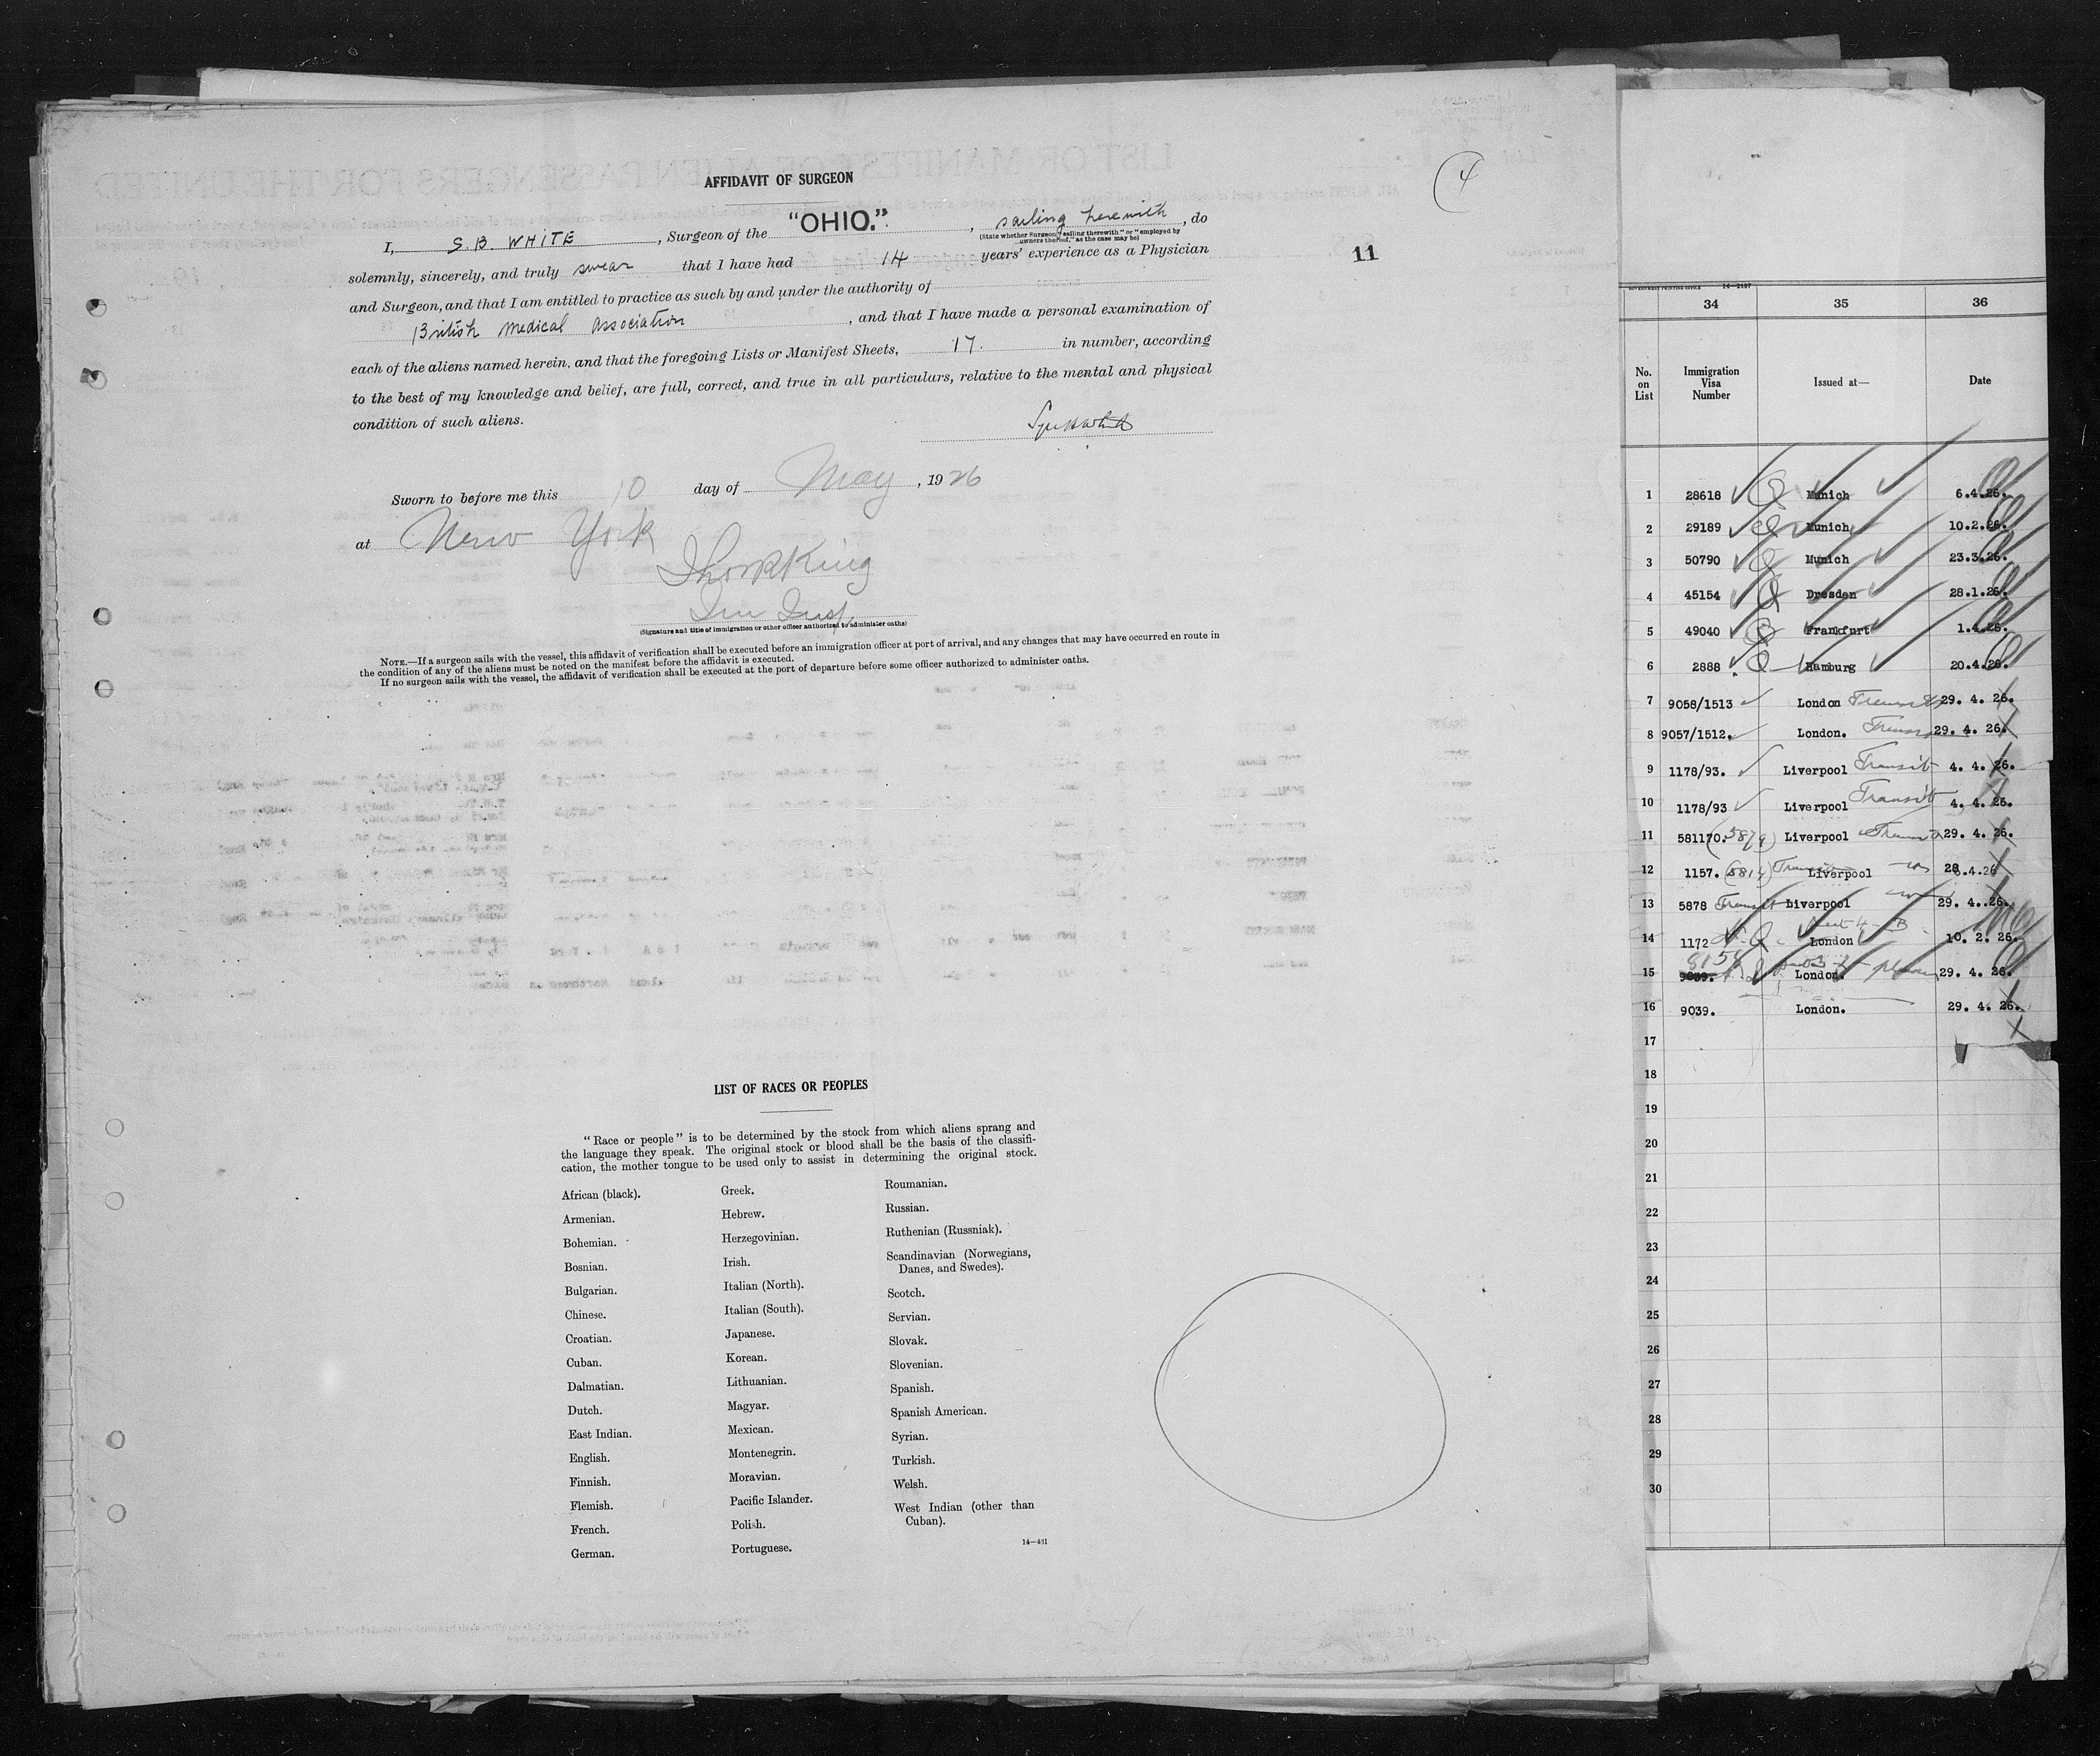 AFFIDAVIT OF SURGEON
4
I, S. B. WHITE, Surgeon of the "OHIO.", sailing herewith, do
(State whether Surgeon "sailing therewith" or "employed by
owners thereof," as the case may be)
11
solemnly, sincerely, and truly swear that I have had 14 years' experience as a Physician
and Surgeon, and that I am entitled to practice as such by and under the authority of
British Medical Association, and that I have made a personal examination of
each of the aliens named herein, and that the foregoing Lists or Manifest Sheets, 17. in number, according
to the best of my knowledge and belief, are full, correct, and true in all particulars, relative to the mental and physical
condition of such aliens.
Sworn to before me this 10 day of May, 1926
at New York
(Signature and title of immigration or other officer authorized to administer oaths)
NOTE.—If a surgeon sails with the vessel, this affidavit of verification shall be executed before an immigration officer at port of arrival, and any changes that may have occurred en route in
the condition of any of the aliens must be noted on the manifest before the affidavit is executed.
If no surgeon sails with the vessel, the affidavit of verification shall be executed at the port of departure before some officer authorized to administer oaths.
LIST OF RACES OR PEOPLES
"Race or people" is to be determined by the stock from which aliens sprang and
the language they speak. The original stock or blood shall be the basis of the classifi-
cation, the mother tongue to be used only to assist in determining the original stock.
African (black).
Armenian.
Bohemian.
Bosnian.
Bulgarian.
Chinese.
Croatian.
Cuban.
Dalmatian.
Dutch.
East Indian.
English.
Finnish.
Flemish.
French.
German.
Greek.
Hebrew.
Herzegovinian.
Irish.
Italian (North).
Italian (South).
Japanese.
Korean.
Lithuanian.
Magyar.
Mexican.
Montenegrin.
Moravian.
Pacific Islander.
Polish.
Portuguese.
Roumanian.
Russian.
Ruthenian (Russniak).
Scandinavian (Norwegians,
Danes, and Swedes).
Scotch.
Servian.
Slovak.
Slovenian.
Spanish.
Spanish American.
Syrian.
Turkish.
Welsh.
West Indian (other than
Cuban).
14—431
GOVERNMENT PRINTING OFFICE 14—2197
34 35 36
No. on List Immigration Visa Number Issued at— Date
1 28618 Munich 6.4.26.
2 29189 Munich 10.2.26.
3 50790 Munich 23.3.26.
4 45154 Dresden 28.1.26.
5 49040 Frankfurt 1.4.26.
6 2888 Hamburg 20.4.26.
7 9058/1513 London 29. 4. 26.
8 9057/1512. London. 29. 4. 26.
9 1178/93. Liverpool Transit 4. 4. 26.
10 1178/93 Liverpool Transit 4. 4. 26.
11 581170. (5879) Liverpool Transit 29. 4. 26.
12 1157. (5814) Transit Liverpool 28.4.26
13 5878 Transit Liverpool 29. 4. 26.
14 1172 London 10. 2. 26.
15 9039. London. 29. 4. 26.
16 9039. London. 29. 4. 26.
17
18
19
20
21
22
23
24
25
26
27
28
29
30